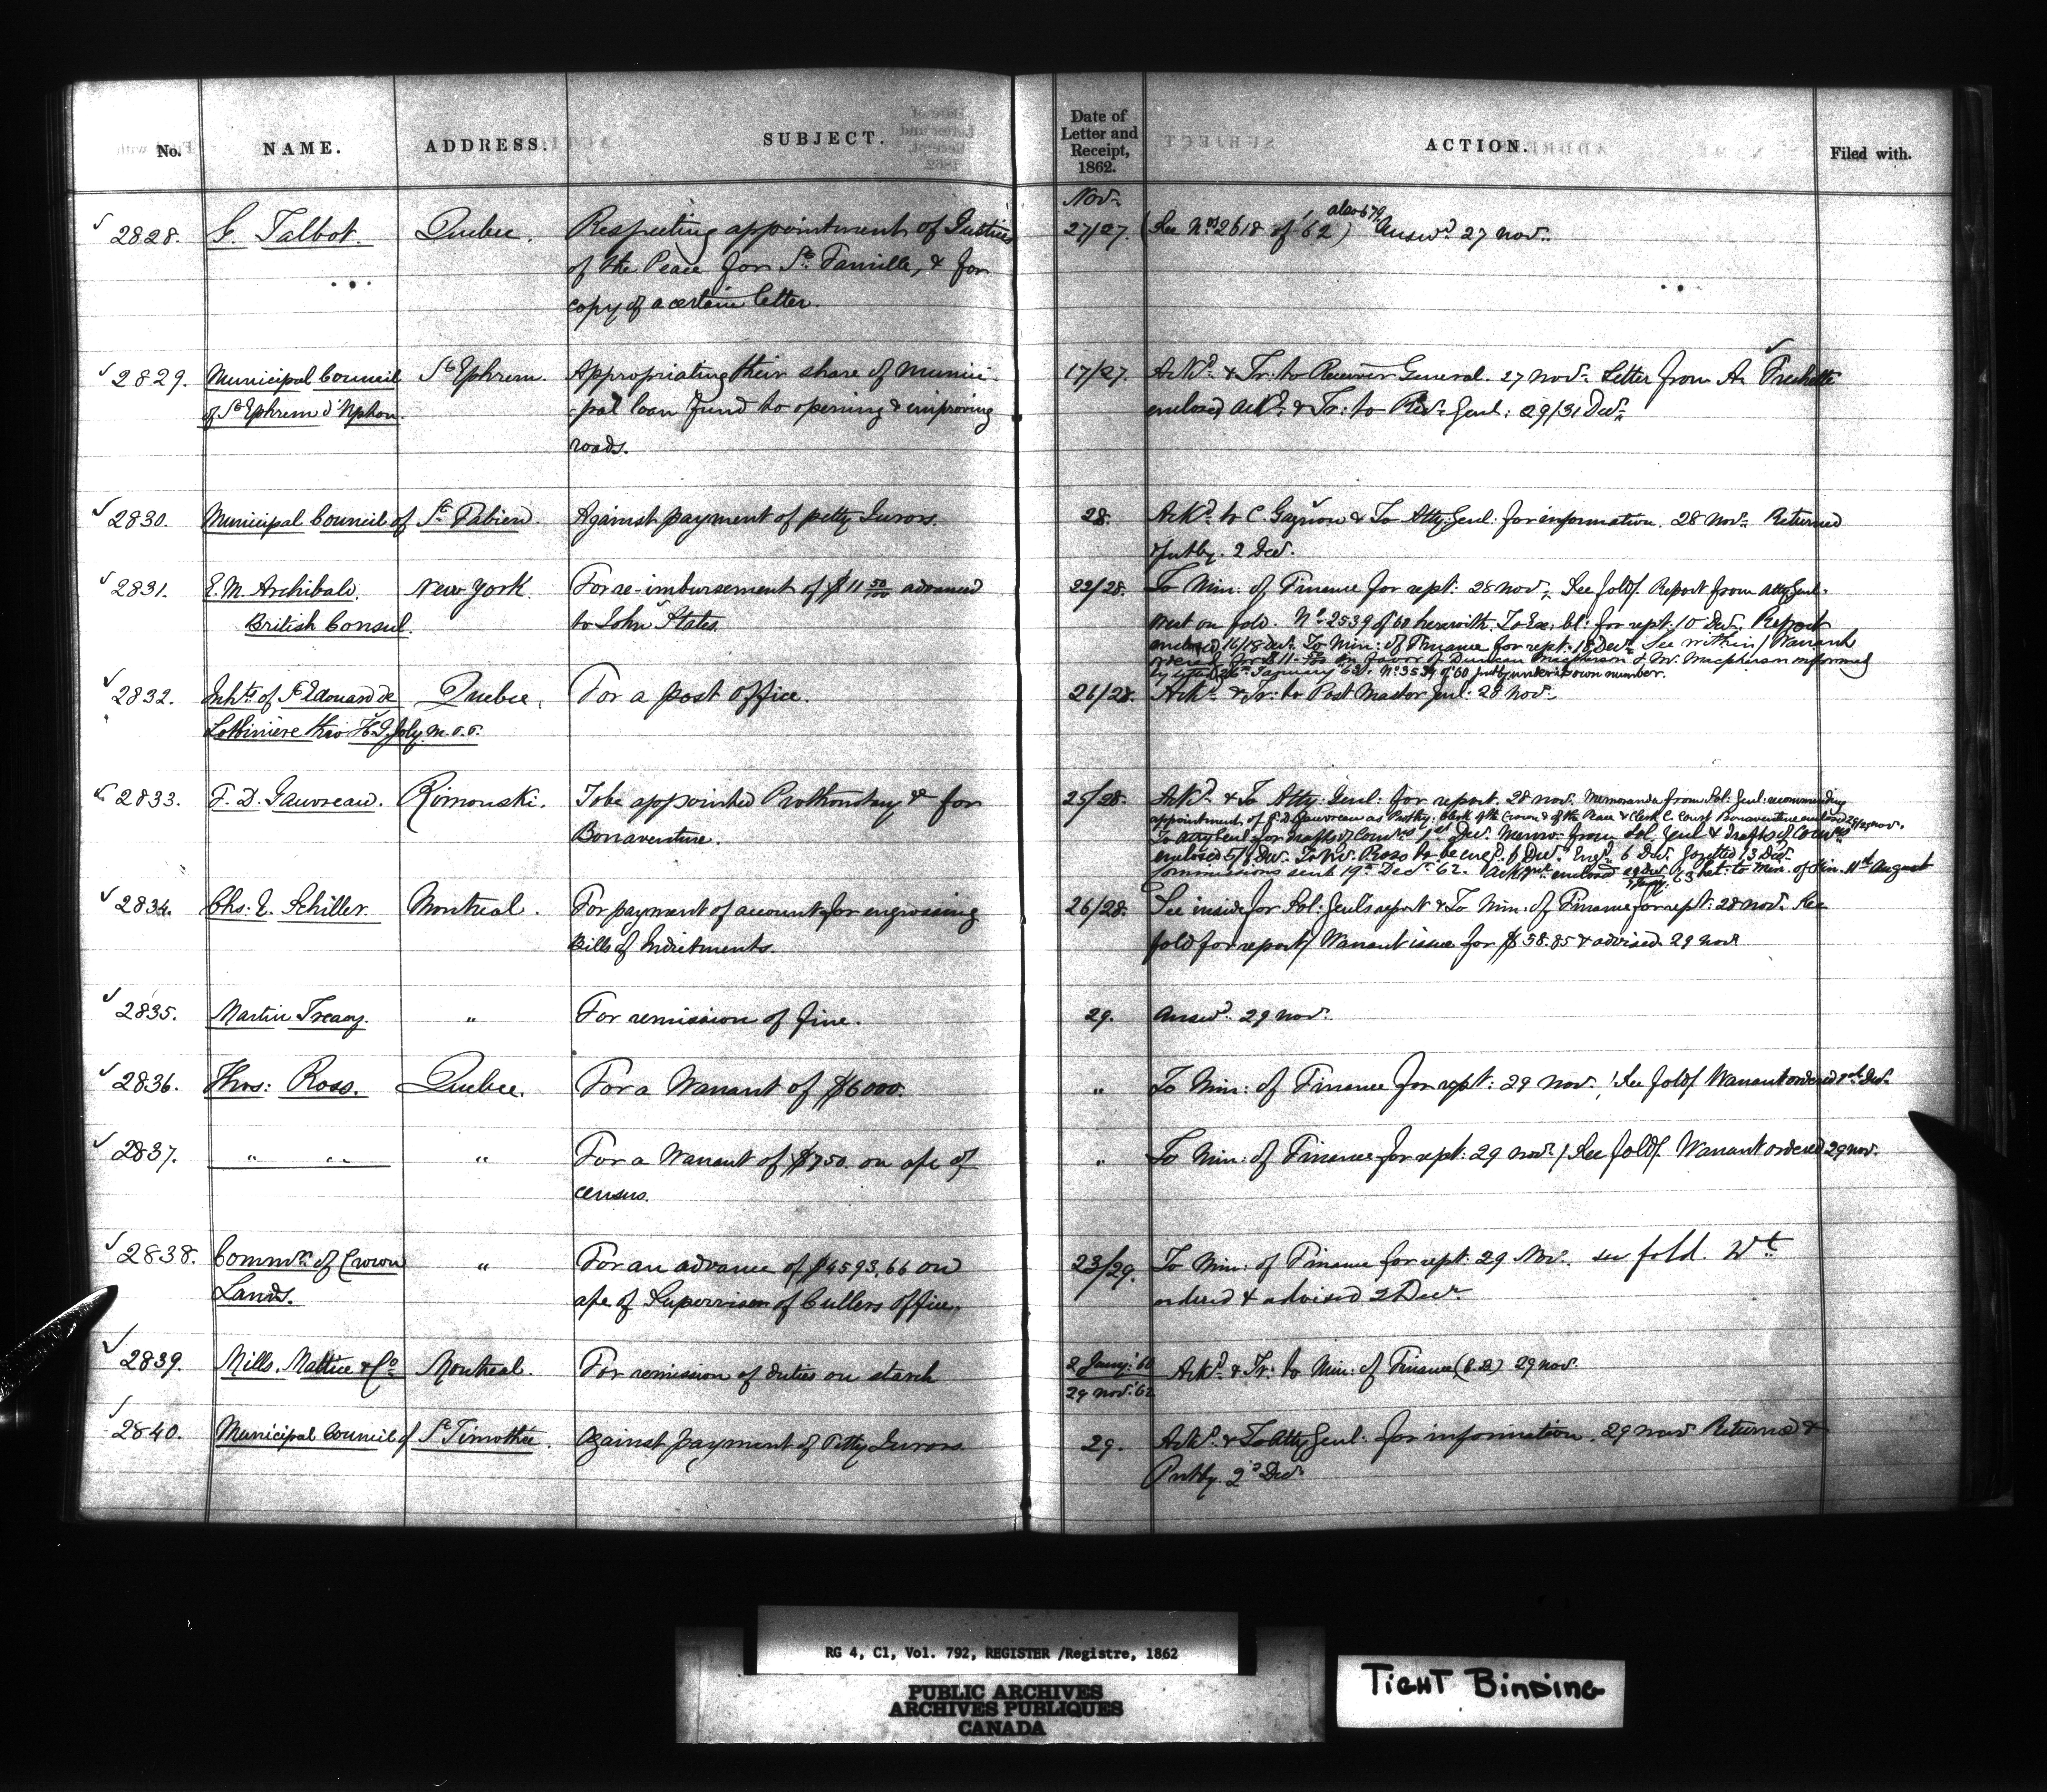 No. NAME. ADDRESS. SUBJECT. Date of Letter and Receipt, 1862. ACTION. Filed with.
Nov.
2828. G. Talbot. Quebec. Respecting appointment of Justices 27/27. (See Nos 2618 of '62) also 679 Answd. 27 Nov.
of the Peace for Ste Famille, & for
copy of a certain letter.
2829. Municipal Council St Ephrem. Appropriating their share of Munici- 17/27. Ackd. & Tr: to Receiver General. 27 Nov. Letter from A. Frechette
of St Ephrem d'Upton. -pal loan fund to opening & improving enclosed Ackd. & Tr: to Recr. Genl: 29/31 Decr.
roads.
2830. Municipal Council of St Fabien. Against payment of petty Jurors. 28. Ackd. to C. Gagnon & To Atty. Genl: for information. 28 Nov. Returned
& putby. 2 Dec.
2831. E. M. Archibald, New York. For re-imbursement of $11 50/100 advanced 22/28. To Min: of Finance for rept: 28 Nov. See fold/ Report from Atty Genl.
British Consul. to John States. writ on fold. No 2539 of 60 herewith. To Ex: Cl: for rept: 10 Dec. Report
enclosed 16/18 Dec. To Min: of Finance for rept. 18 Dec. See within/ Warrant
ordered for $11.50 in favor of Duncan Macpherson & Mr. Macpherson informed
by letter 26th January '63. No 3534 of '60 putby under its own number.
2832. Inhts of St Edouard de Quebec. For a post office. 26/28. Ackd. & Tr: to Post Master Genl: 28 Nov.
Lotbiniere thro' H. G. Joly M.P.P.
2833. F. D. Gauvreau. Rimouski. To be appointed Prothonotary &c for 25/28. Ackd. & To Atty: Genl: for report. 28 Nov. Memoranda from Sol: Genl: recommending
Bonaventure. appointment of F. D. Gauvreau as Prothy: Clerk of the Crown & of the Peace & Clerk C. Court Bonaventure enclosed 28/29 Nov.
To Atty Genl for drafts of Comns 1st Dec. Memo: from Sol: Genl & drafts of Comns
enclosed 5/6 Dec. To Mr. Ross to be engd. 6 Dec. Engd. 6 Dec. Gazetted 13 Dec.
Commissions sent 19th Dec. 62. Ackgmt enclosed 29 Dec. '63 ret: to Min. of Fin. 11th August
2834. Chs. E. Schiller. Montreal. For payment of account for engrossing 26/28. See inside for Sol: Genl's report & To Min: of Finance for rept: 28 Nov. See
Bills of Indictments. fold for report/ Warrant issue for $58.85 & advised. 29 Nov.
2835. Martin Treacy. " For remission of fine. 29. Answd. 29 Nov.
2836. Thos: Ross. Quebec. For a Warrant of $6000. " To Min: of Finance for rept: 29 Nov. / See fold/ Warrant ordered 1st Dec.
2837. " " " For a Warrant of $750. on a/c of " To Min: of Finance for rept: 29 Nov. / See fold/ Warrant ordered 29 Nov.
census.
2838. Commr. of Crown " For an advance of $4593.66 on 23/29. To Min: of Finance for rept: 29 Nov. see fold. Wt
Lands. a/c of Supervisor of Cullers office. ordered & advised 2 Decr
2839. Mills, Mattice & Co Montreal. For remission of duties on starch 2 Jany: 60 Ackd. & Tr: to Min: of Finance (C.D.) 29 Nov.
29 Nov. '62
2840. Municipal Council of St Timothée. Against payment of Petty Jurors. 29. Ackd. & To Atty Genl: for information. 29 Nov. Returned &
Putby. 2d Decr
RG 4, C1, Vol. 792, REGISTER /Registre, 1862
PUBLIC ARCHIVES
ARCHIVES PUBLIQUES
CANADA
TIGHT BINDING